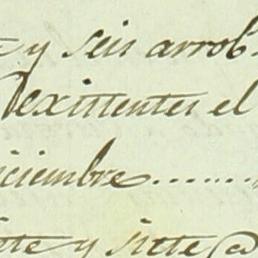 y seis arrob.s
existentes el
iciembre.......
y siete @